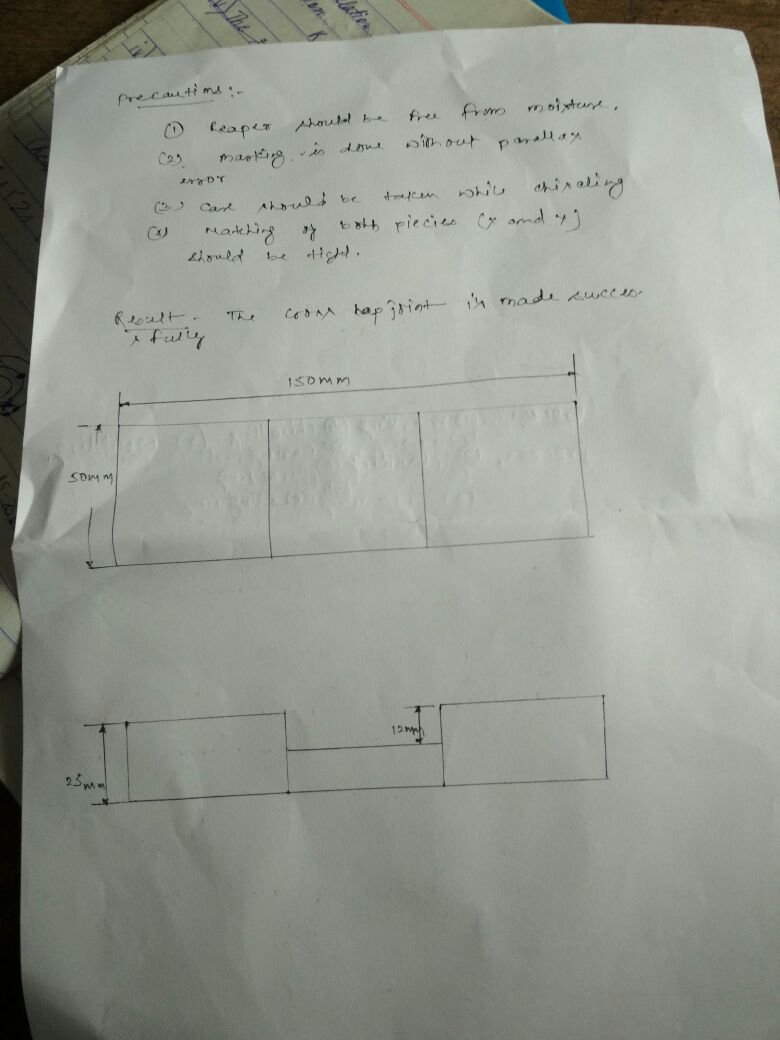 Precautions :-
(1) Reaper should be free from moisture.
(2) marking is done without parallax
error
(3) Care should be taken while chiseling
(4) Matching of both piecies (x and y)
should be tight.
Result - The cross lap joint is made succes-
sfully
150mm
50mm
12mm
25mm